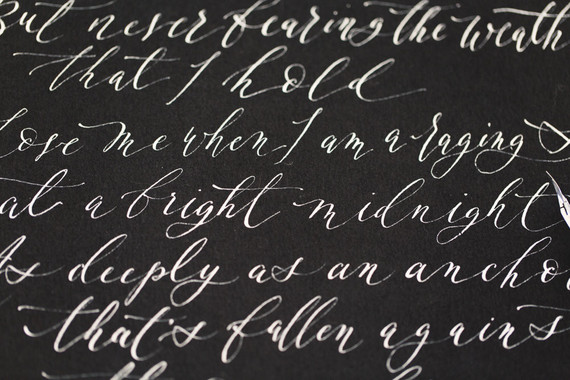 But never fearing the weath
that I hold
Love me when I am a raging
at a bright midnight
As deeply as an ancho
that's fallen agains